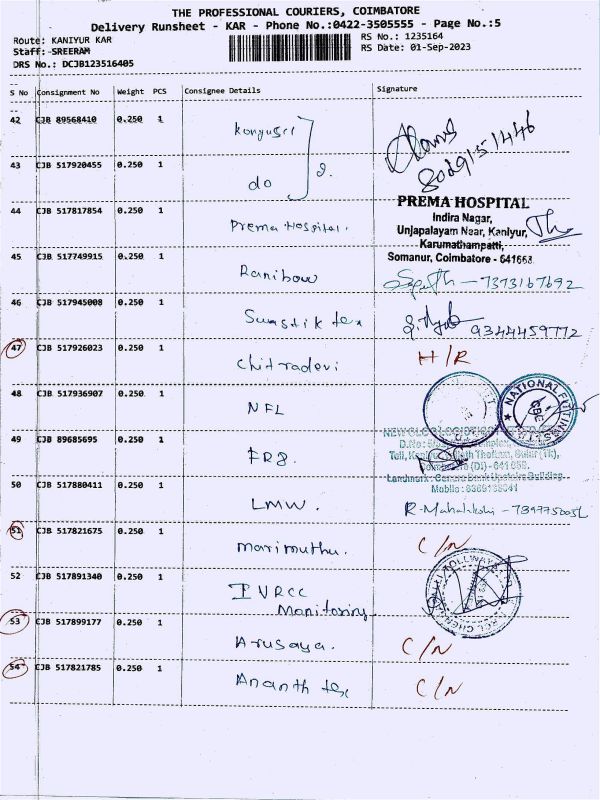 THE PROFESSIONAL COURIERS, COIMBATORE
Delivery Runsheet - KAR - Phone No.:0422-3505555 - Page No.:5
Route: KANIYUR KAR
RS No.: 1235164
Staff: SREERAM
RS Date: 01-Sep-2023
DRS No.: DCJB123516405
S No Consignment No Weight PCS Consignee Details Signature
42 CJB 89568410 0.250 1
43 CJB 517920455 0.250 1 do
8049151446
44 CJB 517817854 0.250 1 Prema Hospital.
PREMA HOSPITAL
Indira Nagar,
Unjapalayam Naar, Kaniyur,
Karumathampatti,
Somanur, Coimbatore - 641668.
45 CJB 517749915 0.250 1 Ranibow
7373167692
46 CJB 517945008 0.250 1 Swastik tex
9344459772
47 CJB 517926023 0.250 1 Chitradevi H/R
48 CJB 517936907 0.250 1 NFL
NATIONAL FITTINGS LTD
49 CJB 89685695 0.250 1
50 CJB 517880411 0.250 1 LMW.
R-Mahalakshi -
51 CJB 517821675 0.250 1 Marimuthu. C/N
52 CJB 517891340 0.250 1 IVRCC
Manitoring
53 CJB 517899177 0.250 1 Arusaya. C/N
54 CJB 517821785 0.250 1 Ananth tex C/N